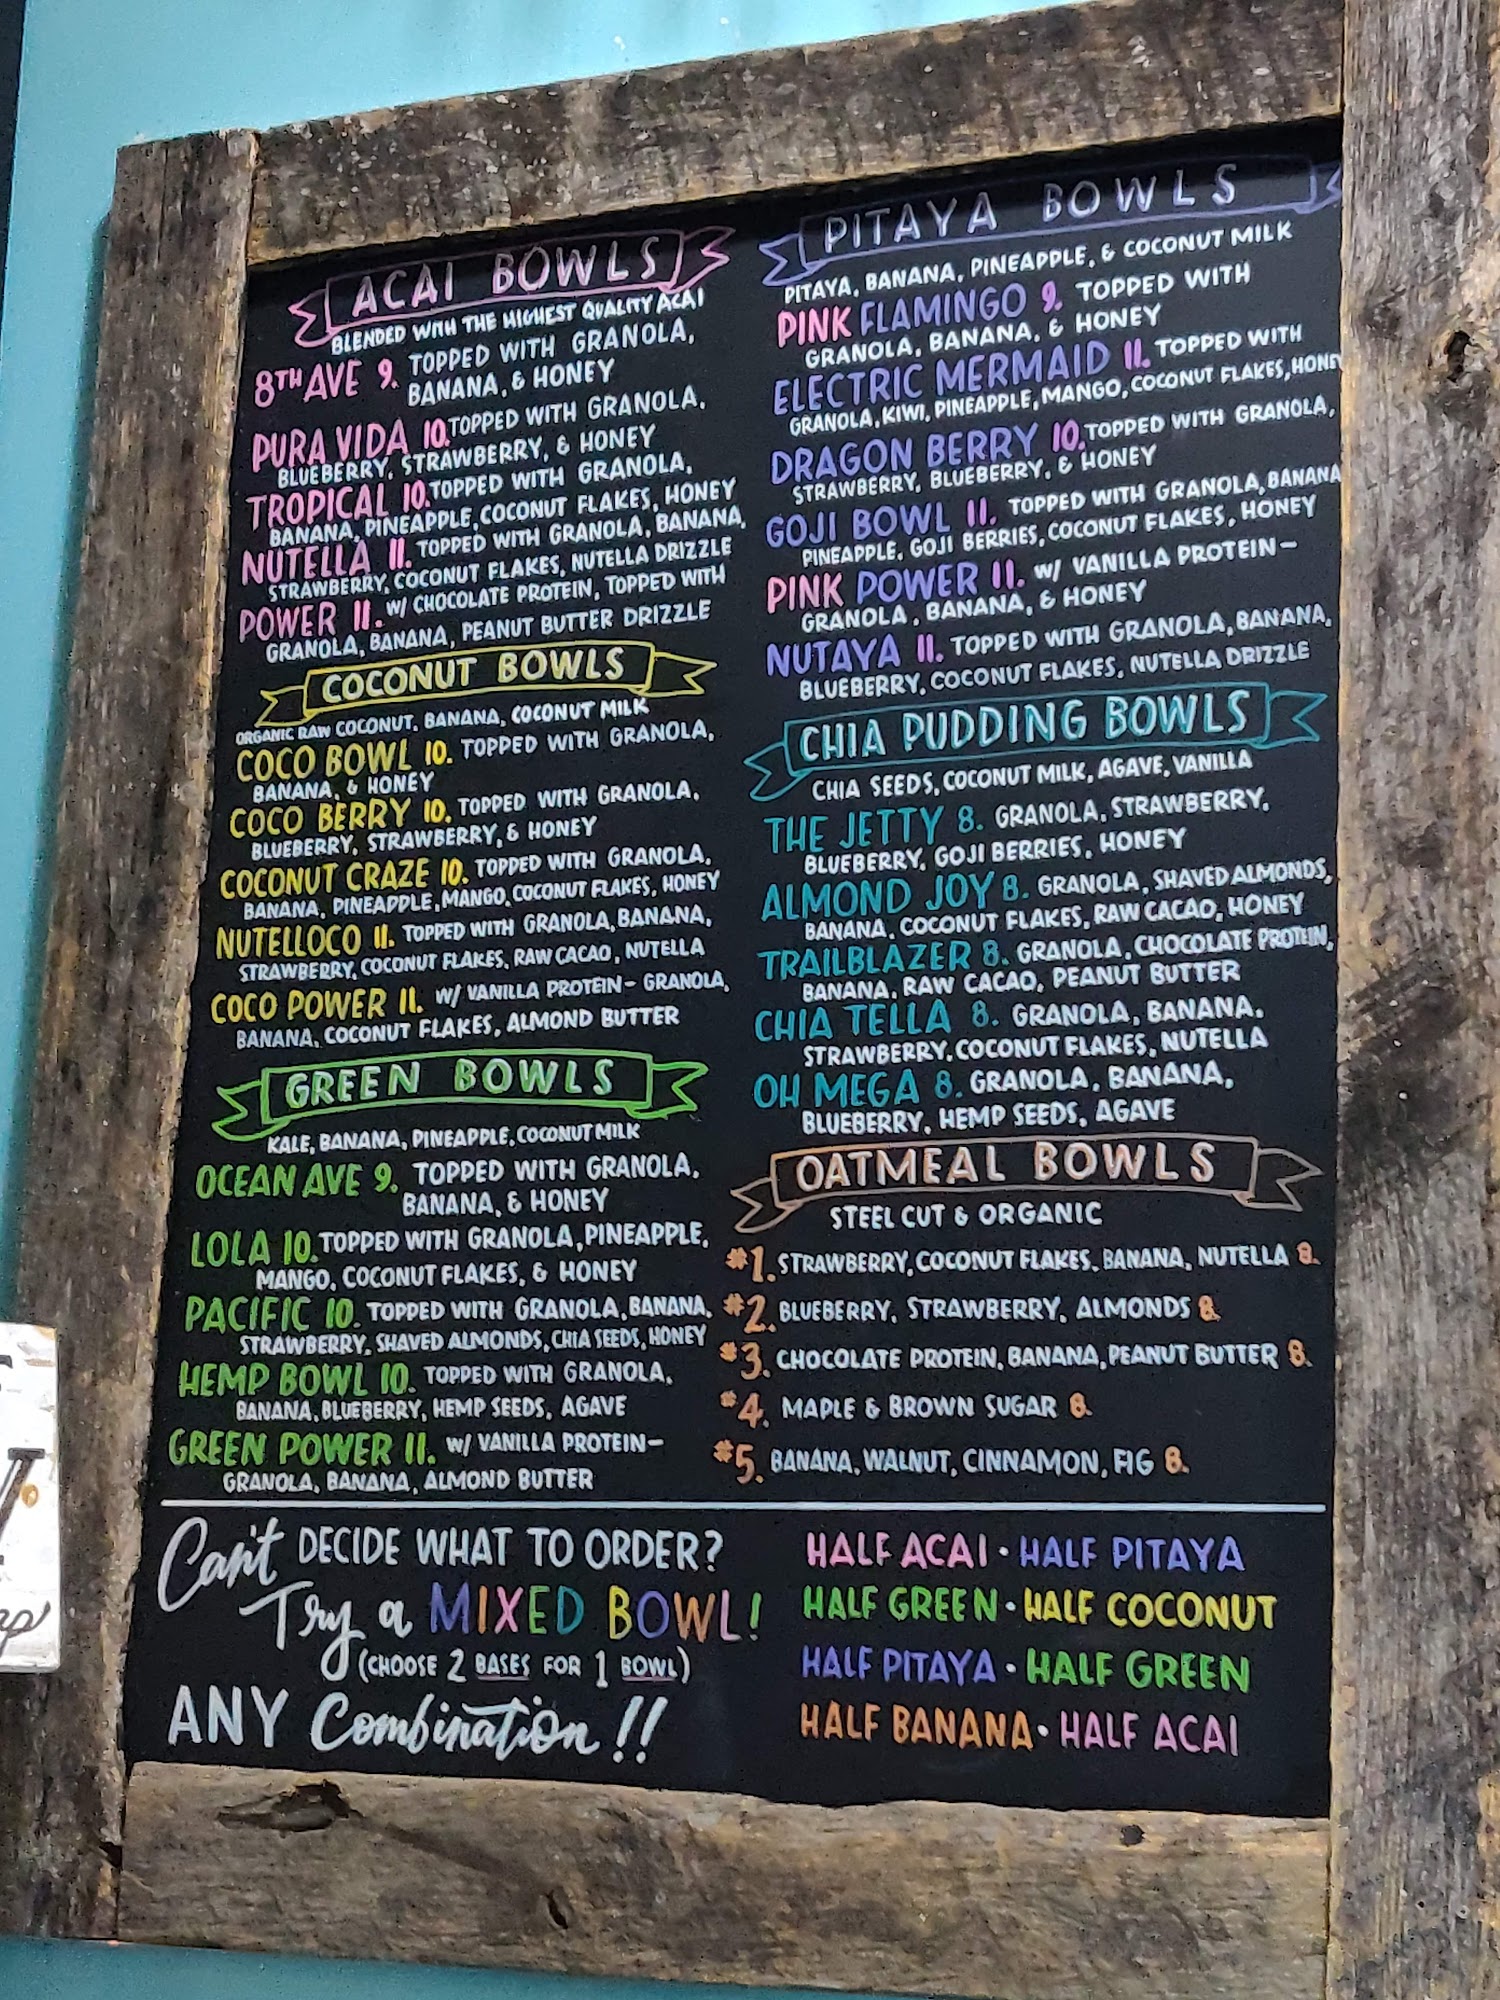 ACAI BOWLS
BLENDED WITH THE HIGHEST QUALITY ACAI
8TH AVE 9. TOPPED WITH GRANOLA,
BANANA, & HONEY
PURA VIDA 10. TOPPED WITH GRANOLA,
BLUEBERRY, STRAWBERRY, & HONEY
TROPICAL 10. TOPPED WITH GRANOLA,
BANANA, PINEAPPLE, COCONUT FLAKES, HONEY
NUTELLA 11. TOPPED WITH GRANOLA, BANANA,
STRAWBERRY, COCONUT FLAKES, NUTELLA DRIZZLE
POWER 11. W/ CHOCOLATE PROTEIN, TOPPED WITH
GRANOLA, BANANA, PEANUT BUTTER DRIZZLE
COCONUT BOWLS
ORGANIC RAW COCONUT, BANANA, COCONUT MILK
COCO BOWL 10. TOPPED WITH GRANOLA,
BANANA, & HONEY
COCO BERRY 10. TOPPED WITH GRANOLA,
BLUEBERRY, STRAWBERRY, & HONEY
COCONUT CRAZE 10. TOPPED WITH GRANOLA,
BANANA, PINEAPPLE, MANGO, COCONUT FLAKES, HONEY
NUTELLOCO 11. TOPPED WITH GRANOLA, BANANA,
STRAWBERRY, COCONUT FLAKES, RAW CACAO, NUTELLA
COCO POWER 11. W/ VANILLA PROTEIN- GRANOLA,
BANANA, COCONUT FLAKES, ALMOND BUTTER
GREEN BOWLS
KALE, BANANA, PINEAPPLE, COCONUT MILK
OCEAN AVE 9. TOPPED WITH GRANOLA,
BANANA, & HONEY
LOLA 10. TOPPED WITH GRANOLA, PINEAPPLE,
MANGO, COCONUT FLAKES, & HONEY
PACIFIC 10. TOPPED WITH GRANOLA, BANANA,
STRAWBERRY, SHAVED ALMONDS, CHIA SEEDS, HONEY
HEMP BOWL 10. TOPPED WITH GRANOLA,
BANANA, BLUEBERRY, HEMP SEEDS, AGAVE
GREEN POWER 11. W/ VANILLA PROTEIN-
GRANOLA, BANANA, ALMOND BUTTER
PITAYA BOWLS
PITAYA, BANANA, PINEAPPLE, & COCONUT MILK
PINK FLAMINGO 9. TOPPED WITH
GRANOLA, BANANA, & HONEY
ELECTRIC MERMAID 11. TOPPED WITH
GRANOLA, KIWI, PINEAPPLE, MANGO, COCONUT FLAKES, HONEY
DRAGON BERRY 10. TOPPED WITH GRANOLA,
STRAWBERRY, BLUEBERRY, & HONEY
GOJI BOWL 11. TOPPED WITH GRANOLA, BANANA
PINEAPPLE, GOJI BERRIES, COCONUT FLAKES, HONEY
PINK POWER 11. W/ VANILLA PROTEIN-
GRANOLA, BANANA, & HONEY
NUTAYA 11. TOPPED WITH GRANOLA, BANANA,
BLUEBERRY, COCONUT FLAKES, NUTELLA DRIZZLE
CHIA PUDDING BOWLS
CHIA SEEDS, COCONUT MILK, AGAVE, VANILLA
THE JETTY 8. GRANOLA, STRAWBERRY,
BLUEBERRY, GOJI BERRIES, HONEY
ALMOND JOY 8. GRANOLA, SHAVED ALMONDS,
BANANA, COCONUT FLAKES, RAW CACAO, HONEY
TRAILBLAZER 8. GRANOLA, CHOCOLATE PROTEIN,
BANANA, RAW CACAO, PEANUT BUTTER
CHIA TELLA 8. GRANOLA, BANANA,
STRAWBERRY, COCONUT FLAKES, NUTELLA
OH MEGA 8. GRANOLA, BANANA,
BLUEBERRY, HEMP SEEDS, AGAVE
OATMEAL BOWLS
STEEL CUT & ORGANIC
#1. STRAWBERRY, COCONUT FLAKES, BANANA, NUTELLA 8.
#2. BLUEBERRY, STRAWBERRY, ALMONDS 8.
#3. CHOCOLATE PROTEIN, BANANA, PEANUT BUTTER 8.
#4. MAPLE & BROWN SUGAR 8.
#5. BANANA, WALNUT, CINNAMON, FIG 8.
Can't DECIDE WHAT TO ORDER?
Try a MIXED BOWL!
(CHOOSE 2 BASES FOR 1 BOWL)
ANY Combination!!
HALF ACAI • HALF PITAYA
HALF GREEN • HALF COCONUT
HALF PITAYA • HALF GREEN
HALF BANANA • HALF ACAI